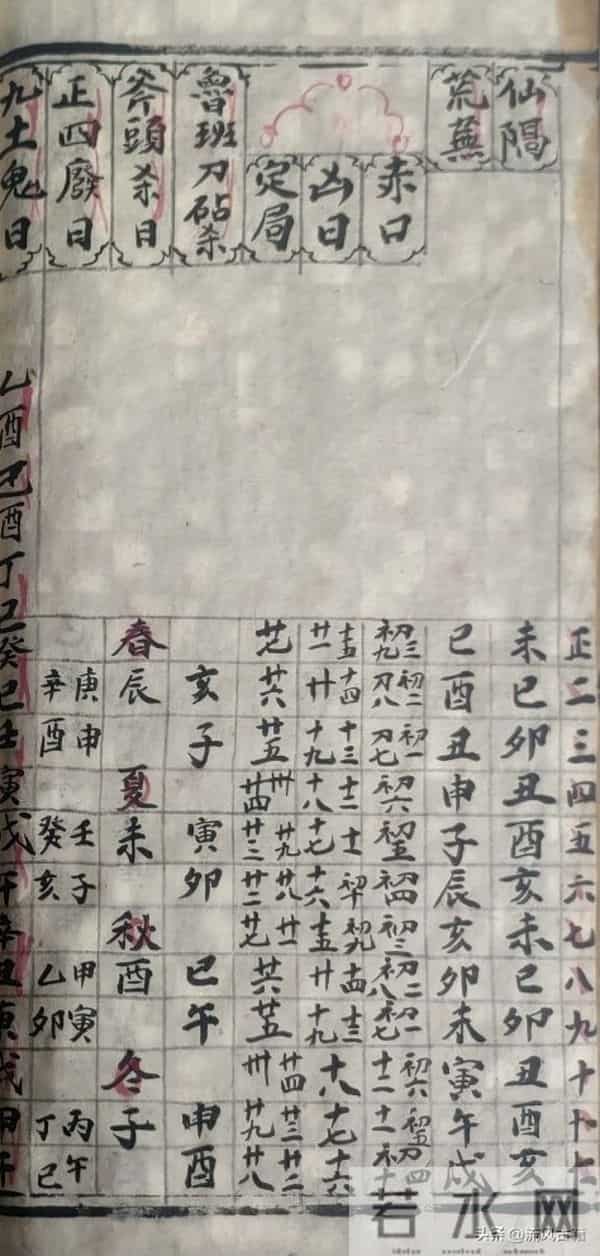 正二三四五六七八九十十一十二
仙隔
未巳卯丑酉亥未巳卯丑酉亥
荒蕪
巳酉丑申子辰亥卯未寅午戌
赤口
初三初九
初二初八
初一初七
初六
初五
初四
初三
初二初八
初一初七
初六十二
初五十一
初四初十
凶日
十五廿一
十四廿
十三十九
十二十八
十一十七
初十十六
初九十五
十四廿
十三十九
十八
十七
十六
定局
廿七
廿六
廿五
卅廿四
廿九廿三
廿八廿二
廿一廿七
廿六
廿五
廿四卅
廿三廿九
廿二廿八
魯班刀砧杀
亥子寅卯巳午申酉
斧頭杀日
春辰夏未秋酉冬子
正四廢日
庚申辛酉
壬子癸亥
甲寅乙卯
丙午丁巳
九土鬼日
乙酉己酉丁巳癸巳壬寅戊午辛丑庚戌甲午
若水网
头条